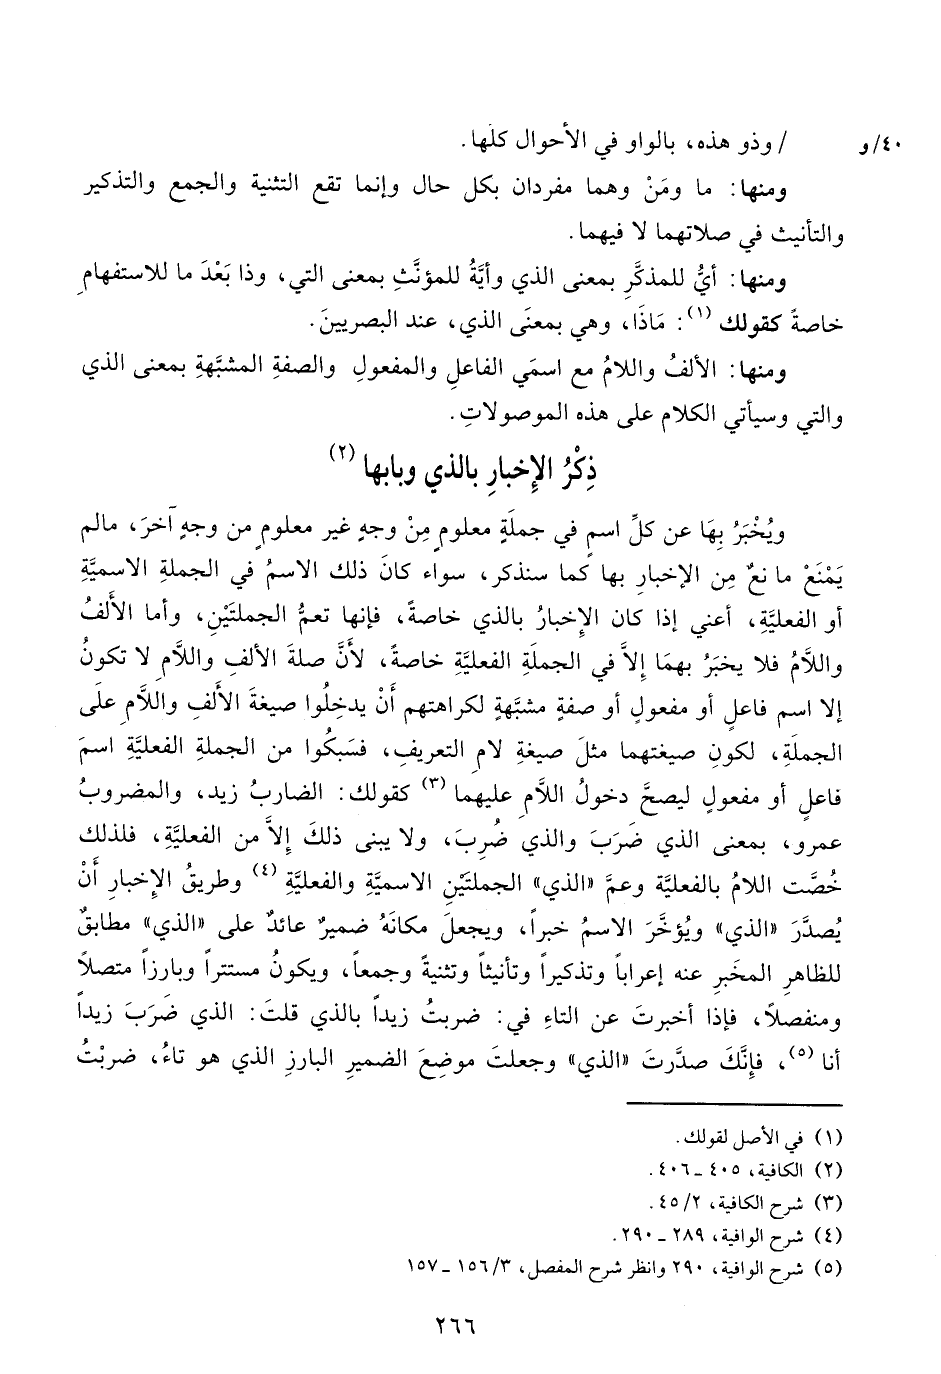 ٤٠/و / وذو هذه، بالواو في الأحوال كلّها.
ومنها: ما ومَنْ وهما مفردان بكل حال وإنما تقع التثنية والجمع والتذكير
والتأنيث في صلاتهما لا فيهما.
ومنها: أيُّ للمذكَّرِ بمعنى الذي وأيَّةُ للمؤنَّثِ بمعنى التي، وذا بَعْدَ ما للاستفهامِ
خاصةً كقولك (١): مَاذَا، وهي بمعنَى الذي، عند البصريينَ.
ومنها: الألفُ واللامُ مع اسمَي الفاعلِ والمفعولِ والصفةِ المشبَّهةِ بمعنى الذي
والتي وسيأتي الكلام على هذه الموصولاتِ.
ذِكْرُ الإِخبارِ بالذي وبابها (٢)
ويُخْبَرُ بِهَا عن كلِّ اسمٍ في جملَةٍ معلومٍ مِنْ وجهٍ غير معلومٍ من وجهٍ آخرَ، مالم
يَمْنَعْ مانعٌ مِن الإخبارِ بها كما سنذكر، سواء كانَ ذلك الاسمُ في الجملةِ الاسميَّةِ
أو الفعليَّةِ، أعني إذا كان الإِخبارُ بالذي خاصةً، فإنها تعمُّ الجملتَيْنِ، وأما الأَلفُ
واللَّامُ فلا يخبَرُ بهمَا إلاَّ في الجملَةِ الفعليَّةِ خاصةً، لأنَّ صلةَ الألفِ واللَّامِ لا تكونُ
إلا اسم فاعلٍ أو مفعولٍ أو صفةٍ مشبَّهةٍ لكراهتهم أَنْ يدخِلُوا صيغةَ الألفِ واللَّامِ علَى
الجملَةِ، لكونِ صيغتهما مثلَ صيغةِ لامِ التعريفِ، فسَبكُوا من الجملة الفعليَّةِ اسمَ
فاعلٍ أو مفعولٍ ليصحَّ دخولُ اللَّامِ عليهما (٣) كقولك: الضاربُ زيد، والمضروبُ
عمرو، بمعنى الذي ضَرَبَ والذي ضُرِبَ، ولا يبنى ذلكَ إلاَّ من الفعليَّةِ، فلذلك
خُصَّت اللامُ بالفعليَّة وعمَّ «الذي» الجملتَيْنِ الاسميَّةِ والفعليَّةِ (٤) وطريقُ الإِخبارِ أَنْ
يُصدَّرَ «الذي» ويُؤخَّرَ الاسمُ خبراً، ويجعلَ مكانَهُ ضميرٌ عائدٌ على «الذي» مطابقٌ
للظاهرِ المخَبرِ عنه إعراباً وتذكيراً وتأنيثاً وتثنيةً وجمعاً، ويكونُ مستتراً وبارزاً متصلاً
ومنفصلاً، فإذا أخبرتَ عن التاءِ في: ضربتُ زيداً بالذي قلتَ: الذي ضَرَبَ زيداً
أنا (٥)، فإنَّكَ صدَّرتَ «الذي» وجعلتَ موضِعَ الضميرِ البارزِ الذي هو تاءُ، ضربْتُ
(١) في الأصل لقولك.
(٢) الكافية، ٤٠٥ ـ ٤٠٦.
(٣) شرح الكافية، ٤٥/٢.
(٤) شرح الوافية، ٢٨٩ ـ ٢٩٠.
(٥) شرح الوافية، ٢٩٠ وانظر شرح المفصل، ١٥٦/٣ ـ ١٥٧
٢٦٦